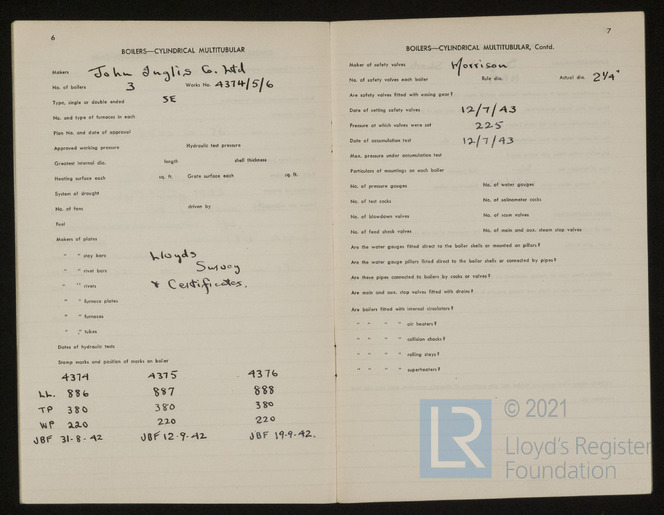 6
BOILERS—CYLINDRICAL MULTITUBULAR
Makers John Inglis Co. Ltd
No. of boilers 3 Works No. 4374/5/6
Type, single or double ended SE
No. and type of furnaces in each
Plan No. and date of approval
Approved working pressure Hydraulic test pressure
Greatest internal dia. length shell thickness
Heating surface each sq. ft. Grate surface each sq. ft.
System of draught
No. of fans driven by
Fuel
Makers of plates
" " stay bars Lloyds
" " rivet bars Survey
" " rivets & Certificates.
" " furnace plates
" " furnaces
" " tubes
Dates of hydraulic tests
Stamp marks and position of marks on boiler
4374 4375 4376
LL. 886 887 888
TP 380 380 380
WP 220 220 220
JBF 31-8-42 JBF 12-9-42 JBF 19-9-42.
7
BOILERS—CYLINDRICAL MULTITUBULAR, Contd.
Maker of safety valves Morrison
No. of safety valves each boiler Rule dia. Actual dia. 2 1/4"
Are safety valves fitted with easing gear?
Date of setting safety valves 12/7/43
Pressure at which valves were set 225
Date of accumulation test 12/7/43
Max. pressure under accumulation test
Particulars of mountings on each boiler
No. of pressure gauges No. of water gauges
No. of test cocks No. of salinometer cocks
No. of blowdown valves No. of scum valves
No. of feed check valves No. of main and aux. steam stop valves
Are the water gauges fitted direct to the boiler shells or mounted on pillars?
Are the water gauge pillars fitted direct to the boiler shells or connected by pipes?
Are these pipes connected to boilers by cocks or valves?
Are main and aux. stop valves fitted with drains?
Are boilers fitted with internal circulators?
" " " " air heaters?
" " " " collision chocks?
" " " " rolling stays?
" " " " superheaters?
LR © 2021
Lloyd's Register
Foundation